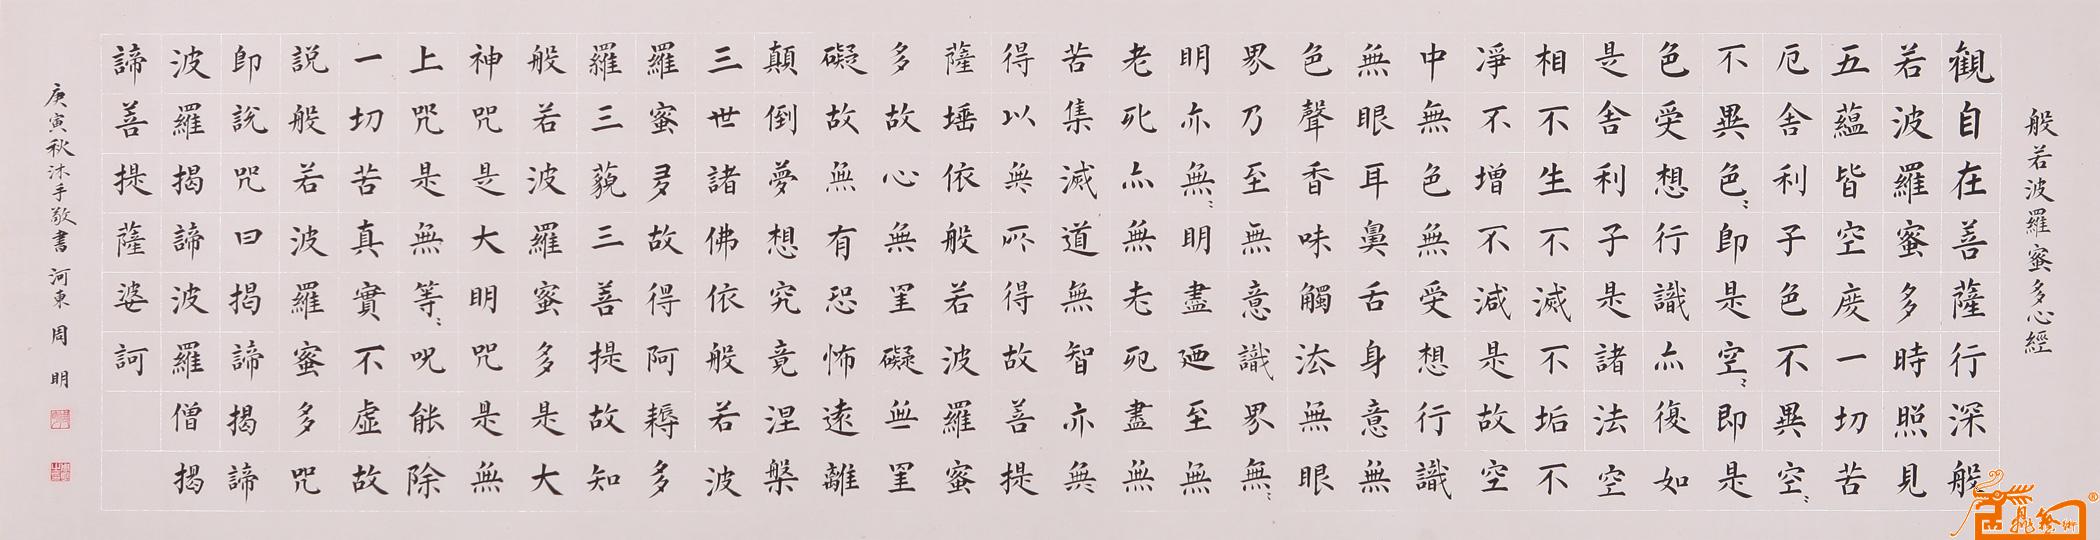 般若波羅蜜多心經
觀自在菩薩行深般
若波羅蜜多時照見
五蘊皆空度一切苦
厄舍利子色不異空〻
不異色〻即是空〻即是
色受想行識亦復如
是舍利子是諸法空
相不生不滅不垢不
淨不增不減是故空
中無色無受想行識
無眼耳鼻舌身意無
色聲香味觸法無眼
界乃至無意識界無〻
明亦無〻明盡廼至無
老死亦無老死盡無
苦集滅道無智亦無
得以無所得故菩提
薩埵依般若波羅蜜
多故心無罣礙無罣
礙故無有恐怖遠離
顛倒夢想究竟涅槃
三世諸佛依般若波
羅蜜多故得阿耨多
羅三藐三菩提故知
般若波羅蜜多是大
神咒是大明咒是無
上咒是無等〻呪能除
一切苦真實不虛故
説般若波羅蜜多咒
即說咒曰揭諦揭諦
波羅揭諦波羅僧揭
諦菩提薩婆訶
庚寅秋沐手敬書 河東 周 明